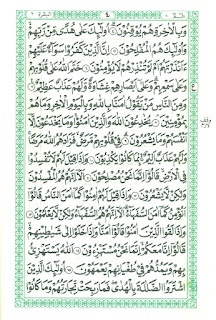 البقرة ٢
٤
وَبِالْاٰخِرَةِ هُمْ يُوْقِنُوْنَ اُولٰٓئِكَ عَلٰى هُدًى مِّنْ رَّبِّهِمْ
وَاُولٰٓئِكَ هُمُ الْمُفْلِحُوْنَ اِنَّ الَّذِيْنَ كَفَرُوْا سَوَآءٌ عَلَيْهِمْ
ءَاَنْذَرْتَهُمْ اَمْ لَمْ تُنْذِرْهُمْ لَا يُؤْمِنُوْنَ خَتَمَ اللّٰهُ عَلٰى قُلُوْبِهِمْ
وَعَلٰى سَمْعِهِمْ وَعَلٰٓى اَبْصَارِهِمْ غِشَاوَةٌ وَّلَهُمْ عَذَابٌ عَظِيْمٌ
وَمِنَ النَّاسِ مَنْ يَّقُوْلُ اٰمَنَّا بِاللّٰهِ وَبِالْيَوْمِ الْاٰخِرِ وَمَا هُمْ
بِمُؤْمِنِيْنَ يُخٰدِعُوْنَ اللّٰهَ وَالَّذِيْنَ اٰمَنُوْا وَمَا يَخْدَعُوْنَ اِلَّآ
اَنْفُسَهُمْ وَمَا يَشْعُرُوْنَ فِيْ قُلُوْبِهِمْ مَّرَضٌ فَزَادَهُمُ اللّٰهُ مَرَضًا
وَلَهُمْ عَذَابٌ اَلِيْمٌ بِمَا كَانُوْا يَكْذِبُوْنَ وَاِذَا قِيْلَ لَهُمْ لَا تُفْسِدُوْا
فِي الْاَرْضِ قَالُوْٓا اِنَّمَا نَحْنُ مُصْلِحُوْنَ اَلَآ اِنَّهُمْ هُمُ الْمُفْسِدُوْنَ
وَلٰكِنْ لَّا يَشْعُرُوْنَ وَاِذَا قِيْلَ لَهُمْ اٰمِنُوْا كَمَآ اٰمَنَ النَّاسُ قَالُوْٓا
اَنُؤْمِنُ كَمَآ اٰمَنَ السُّفَهَآءُ اَلَآ اِنَّهُمْ هُمُ السُّفَهَآءُ وَلٰكِنْ لَّا يَعْلَمُوْنَ
وَاِذَا لَقُوا الَّذِيْنَ اٰمَنُوْا قَالُوْٓا اٰمَنَّا وَاِذَا خَلَوْا اِلٰى شَيٰطِيْنِهِمْ
قَالُوْٓا اِنَّا مَعَكُمْ اِنَّمَا نَحْنُ مُسْتَهْزِءُوْنَ اَللّٰهُ يَسْتَهْزِئُ
بِهِمْ وَيَمُدُّهُمْ فِيْ طُغْيَانِهِمْ يَعْمَهُوْنَ اُولٰٓئِكَ الَّذِيْنَ
اشْتَرَوُا الضَّلٰلَةَ بِالْهُدٰى فَمَا رَبِحَتْ تِّجَارَتُهُمْ وَمَا كَانُوْا